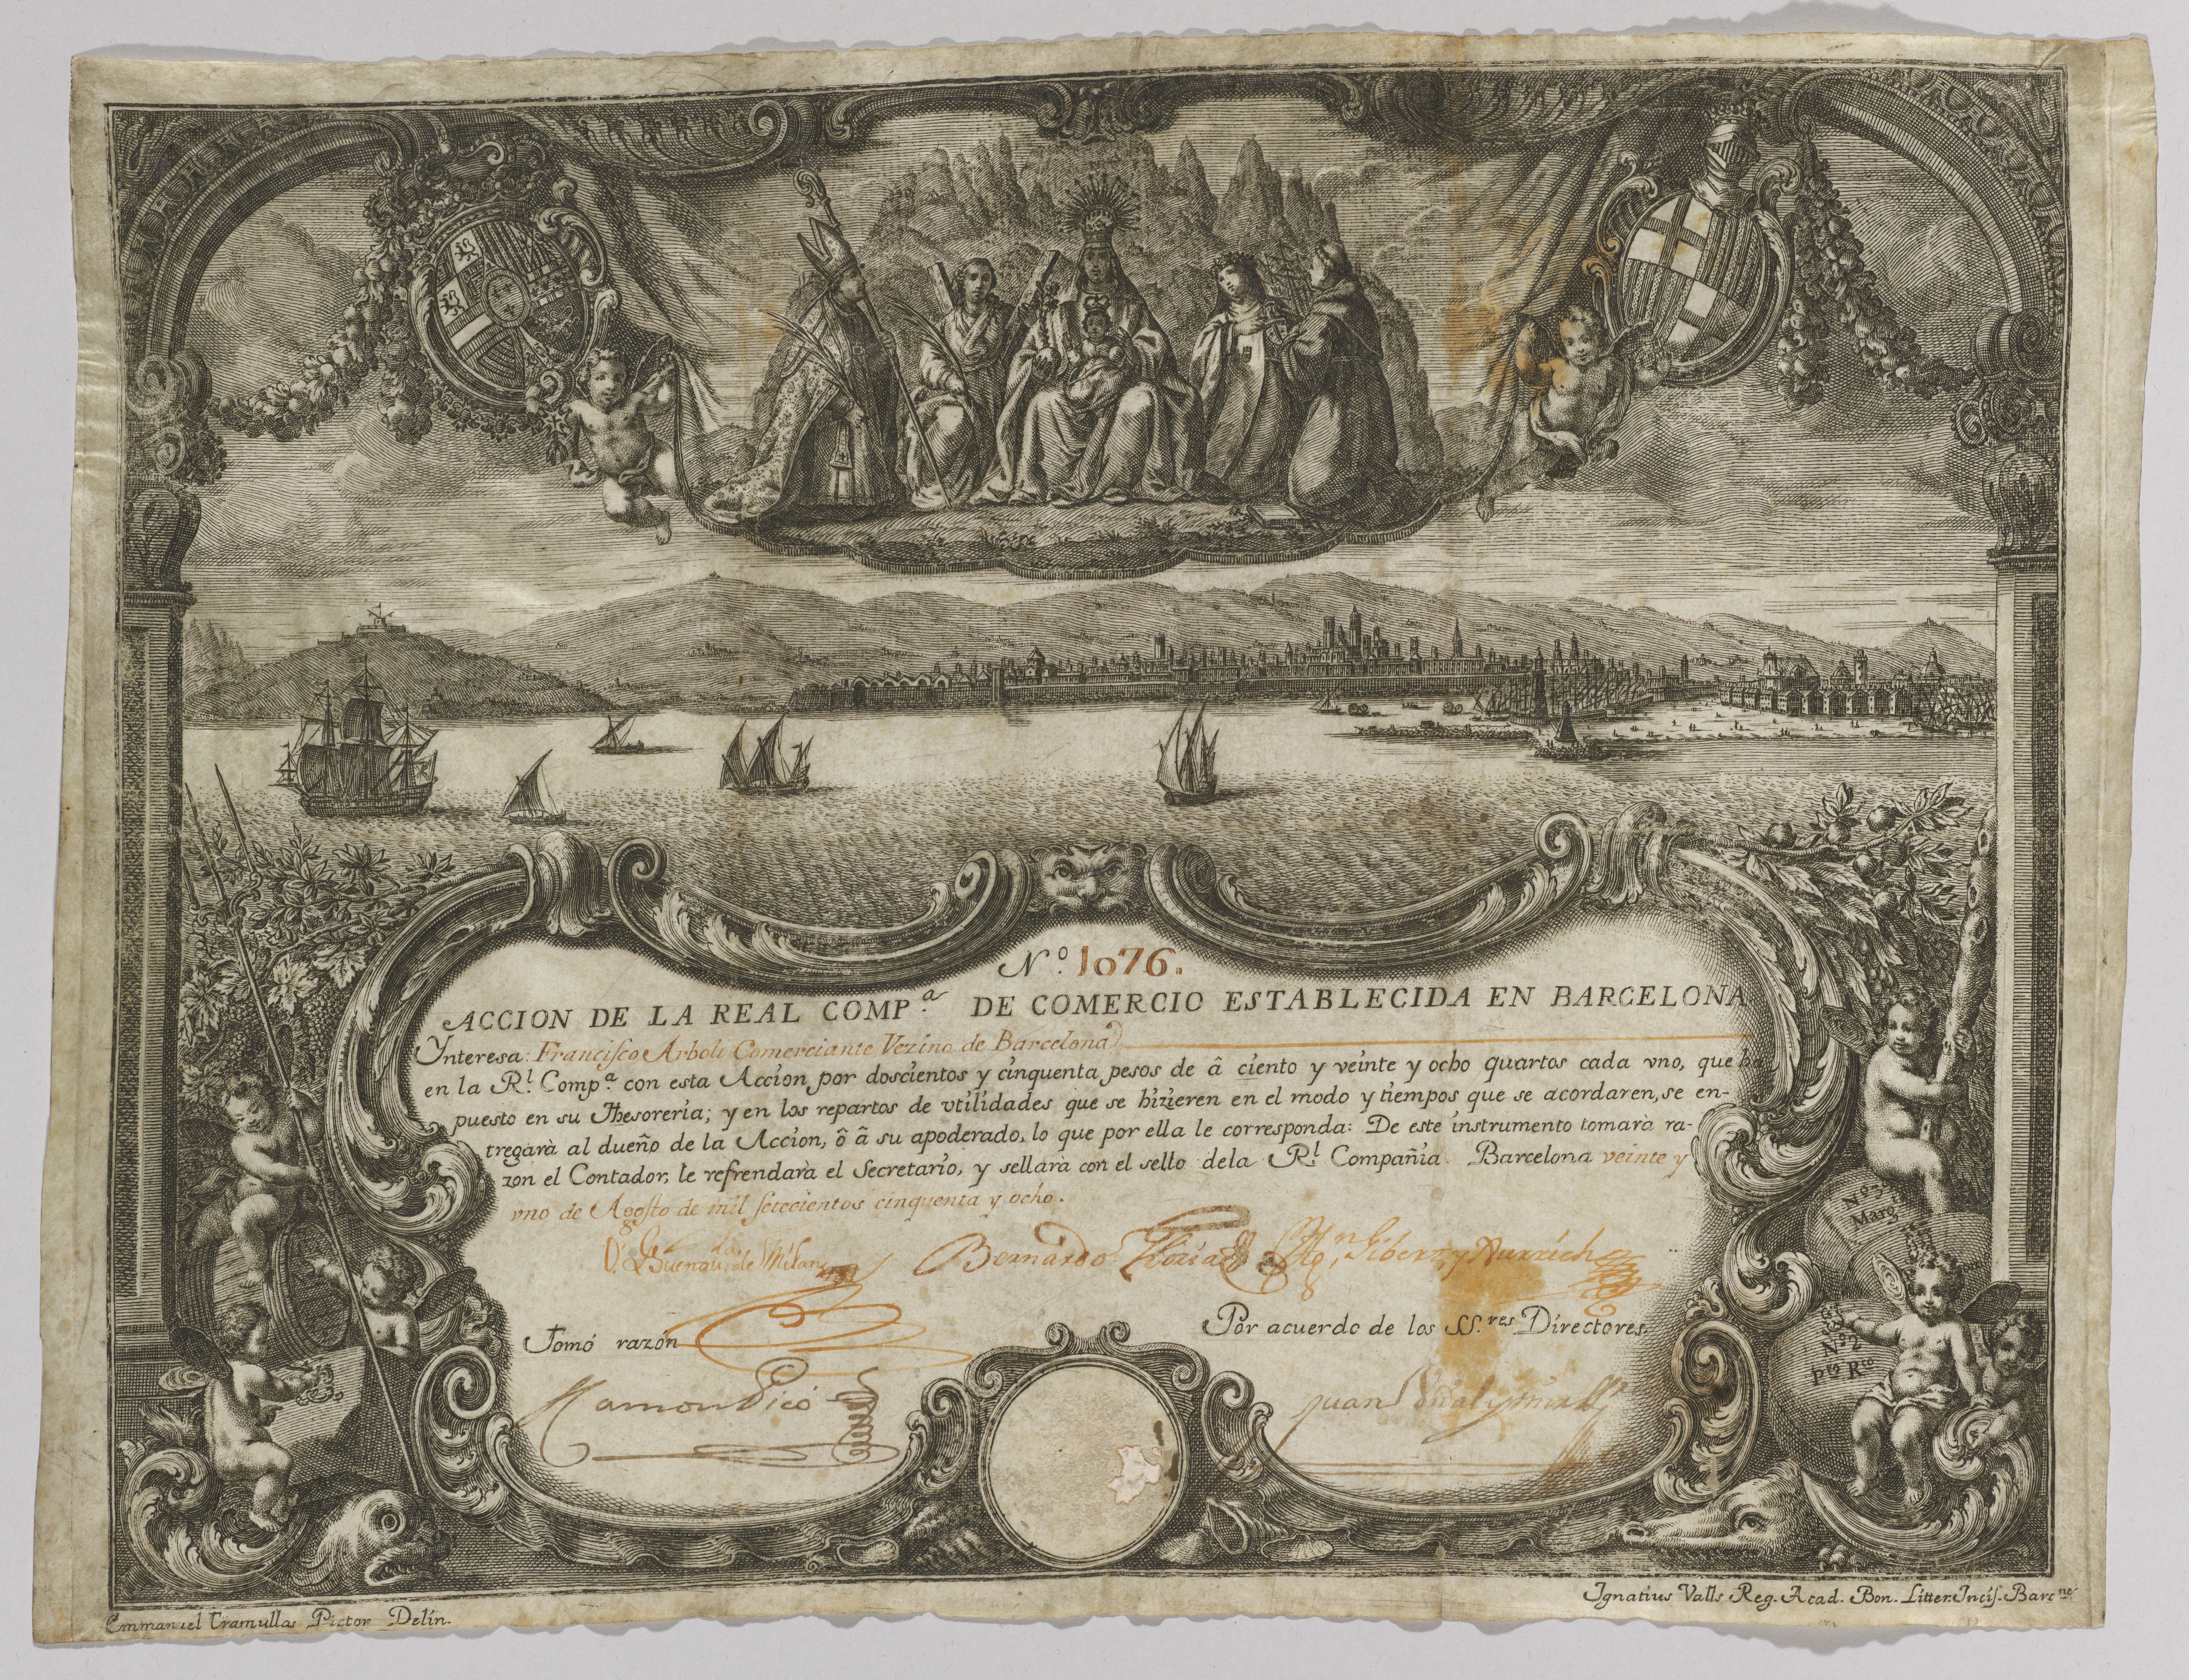 Nº. 1076.
ACCION DE LA REAL COMP.ª DE COMERCIO ESTABLECIDA EN BARCELONA
Ynteresa: Francisco Arboli Comerciante Vezino de Barcelona
en la R.l Comp.ª con esta Accion por doscientos y cinquenta pesos de â ciento y veinte y ocho quartos cada vno, que ha
puesto en su Thesoreria; y en los repartos de vtilidades que se hizieren en el modo y tiempos que se acordaren, se en-
tregarà al dueño de la Accion, ô â su apoderado, lo que por ella le corresponda: De este instrumento tomarà ra-
zon el Contador, le refrendarà el Secretario, y sellarà con el sello dela R.l Compañia. Barcelona veinte y
vno de Agosto de mil setecientos cinquenta y ocho.
de Milans Bernardo Gibert y Xurrich
Tomó razón
Por acuerdo de los SS.res Directores.
Ramon Picó
Juan Vidal y
Nº 3
Marg
Nº 2
pto Rco
Emmanuel Tramullas Pictor Delin.
Ignatius Valls Reg. Acad. Bon. Litter. Incis. Barc.ne